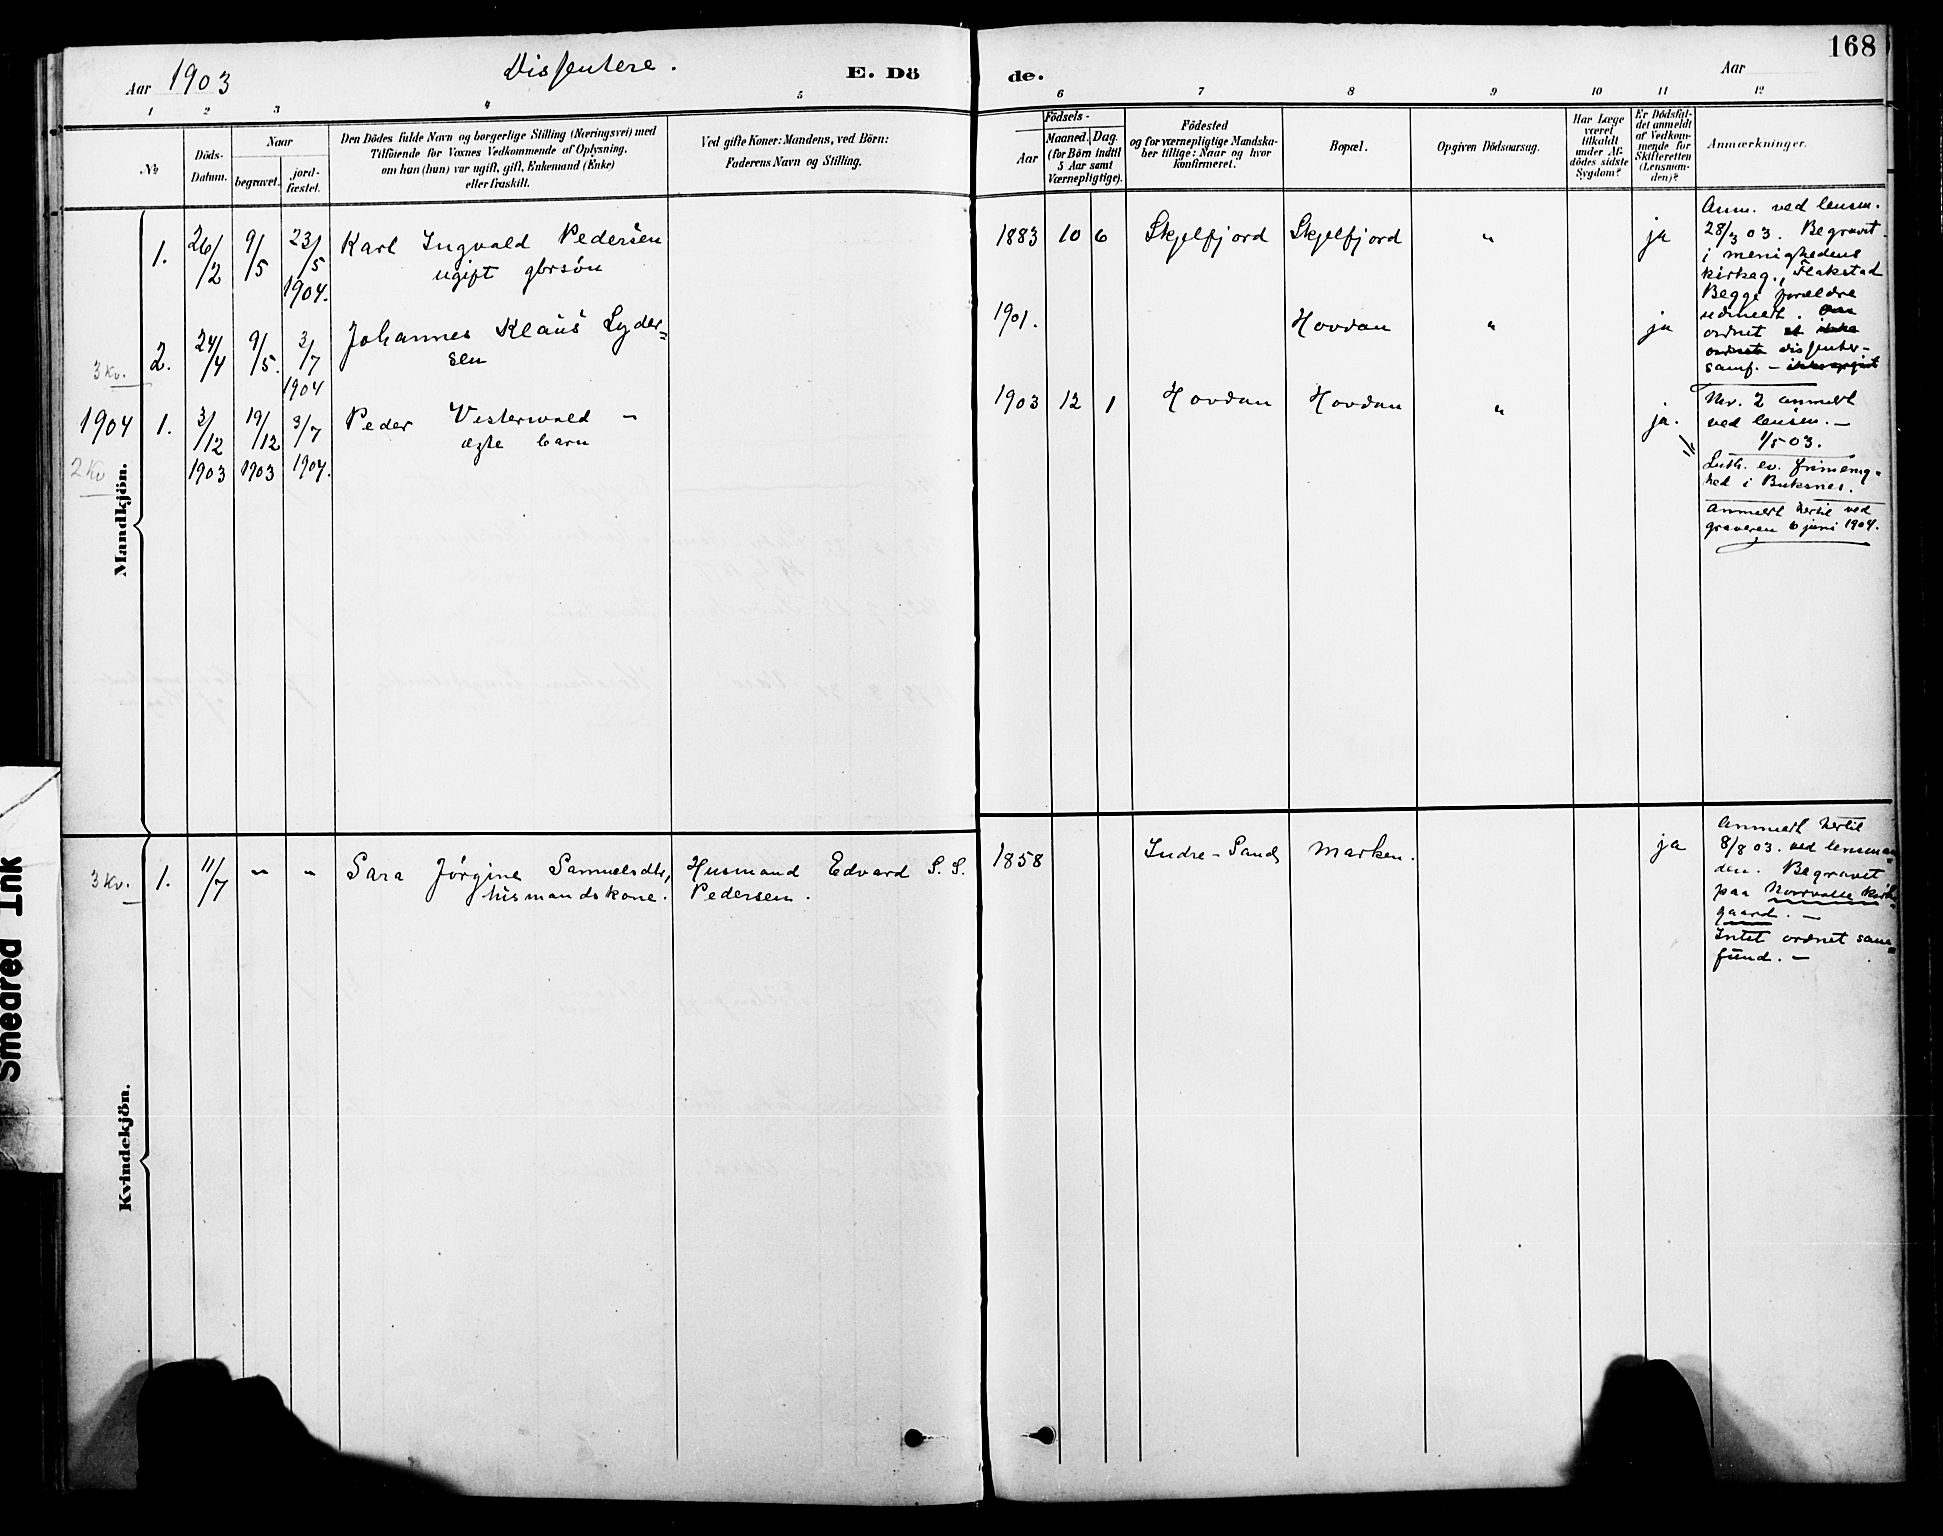 168
Aar 1903
Dissentere.
E. Dö
de.
Aar
1 2 3 4 5 6 7 8 9 10 11 12
№
Döds-
Datum.
Naar
begravet.
jord-
fæstet.
Den Dödes fulde Navn og borgerlige Stilling (Næringsvei) med
Tilföiende for Voxnes Vedkommende af Oplysning,
om han (hun) var ugift, gift, Enkemand (Enke)
eller fraskilt.
Ved gifte Koner: Mandens, ved Börn:
Faderens Navn og Stilling.
Födsels-
Aar
Maaned. Dag.
(for Börn indtil
5 Aar samt
Værnepligtige).
Födested
og for værnepligtige Mandska-
ber tillige: Naar og hvor
konfirmeret.
Bopæl.
Opgiven Dödsaarsag.
Har Læge
været
tilkaldt
under Af-
dödes sidste
Sygdom?
Er Dödsfal-
det anmeldt
af Vedkom-
mende for
Skifteretten
(Lensman-
den)?
Anmærkninger.
Mandkjön.
1. 26/2 9/5 23/5 1904. Karl Ingvald Pedersen
ugift gbrsøn
1883 10 6 Skjelfjord Skjelfjord " ja
Anm. ved lensm.
28/3 03. Begravet
i menighedens
kirkeg., Flakstad
Begge forældre
udmeldt.
ordnet
dissenter-
samf. –
3 Kv.
2. 24/4 9/5. 3/7 1904 Johannes Klaus Lyder=
sen
1901. Hovdan " ja
Nr. 2 anmeldt
ved lensm. –
1/5 03.
1904 1. 3/12 1903 19/12 1903 3/7 1904. Peder Vesterwald –
ægte barn
1903 12 1 Hovdan Hovdan " ja.
2 Kv
Luth. ev. frimenig=
hed i Buksnes.
Anmeldt hertil ved
graveren 6 juni 1904.
Kvindekjön.
3 Kv. 1. 11/7 " " Sara Jørgine Samuelsdtr,
husmandskone.
Husmand Edvard S. S.
Pedersen.
1858 Indre-Sand Marken. ja
Anmeldt hertil
8/8 03. ved lensman=
den. Begravet
paa Norvalle kirke=
gaard. –
Intet ordnet sam=
fund. –
Smeared Ink